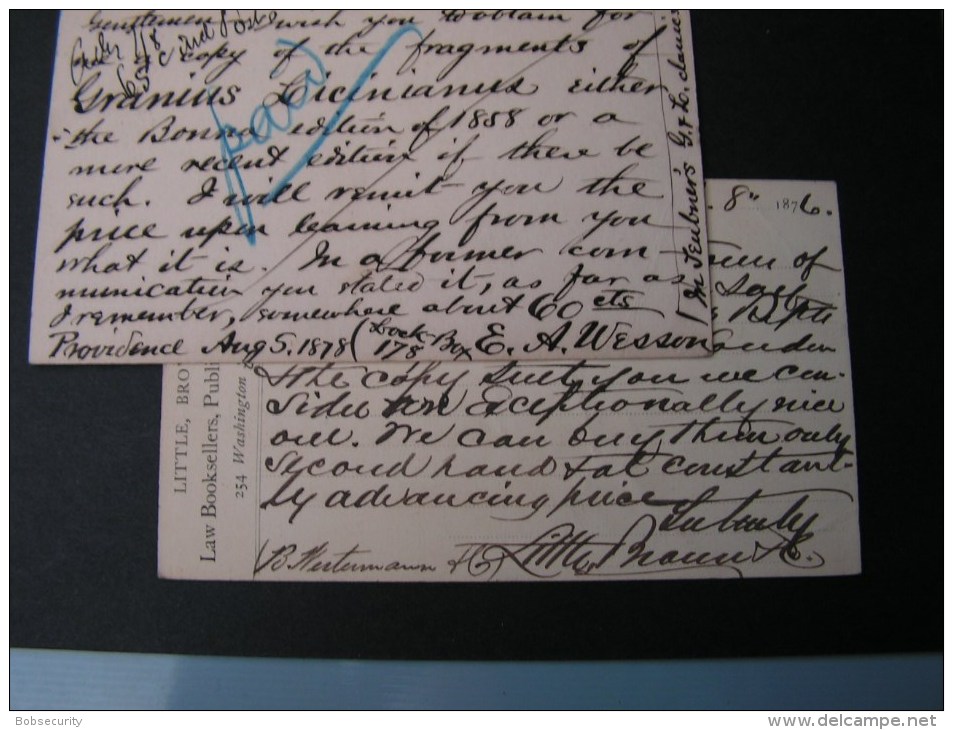 Gentlemen wish you to obtain for
copy of the fragments of
Granius Licinianus either
the Bonna edition of 1858 or a
more recent edition if there be
such. I will remit you the
price upon learning from you
what it is. In a former com-
munication you stated it, as far as
I remember, somewhere about 60 cts
Providence Aug 5. 1878 (Lock-Box 178 E. A. Wesson
In Teubner's G. & L. classics
paid
8" 1876.
of
the copy sent you we con-
sider an Exceptionally nice
one. We can buy them only
second hand & at constant-
ly advancing price
Little Brown & Co.
B. Westermann & Co
LITTLE, BRO
Law Booksellers, Publi
254 Washington
Bobsecurity
www.delcampe.net